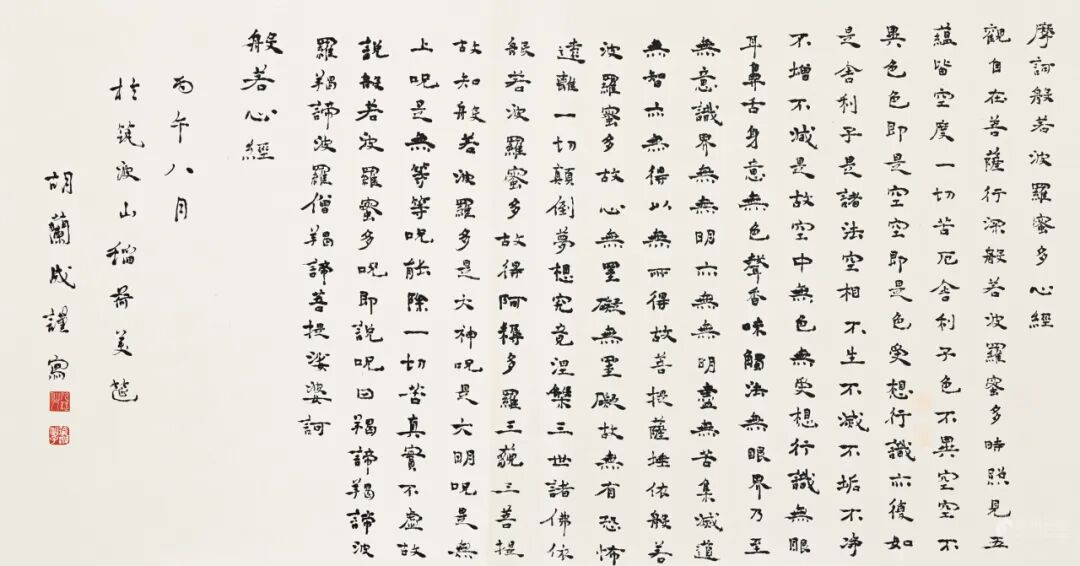 摩訶般若波羅蜜多心經
觀自在菩薩行深般若波羅蜜多時照見五
蘊皆空度一切苦厄舍利子色不異空空不
異色色即是空空即是色受想行識亦復如
是舍利子是諸法空相不生不滅不垢不淨
不增不減是故空中無色無受想行識無眼
耳鼻舌身意無色聲香味觸法無眼界乃至
無意識界無無明亦無無明盡無苦集滅道
無智亦無得以無所得故菩提薩埵依般若
波羅蜜多故心無罣礙無罣礙故無有恐怖
遠離一切顛倒夢想究竟涅槃三世諸佛依
般若波羅蜜多故得阿耨多羅三藐三菩提
故知般若波羅多是大神呪是大明呪是無
上呪是無等等呪能除一切苦真實不虛故
說般若波羅蜜多呪即說呪曰羯諦羯諦波
羅羯諦波羅僧羯諦菩提娑婆訶
般若心經
丙午八月
於筑波山稻荷美
胡蘭成謹寫